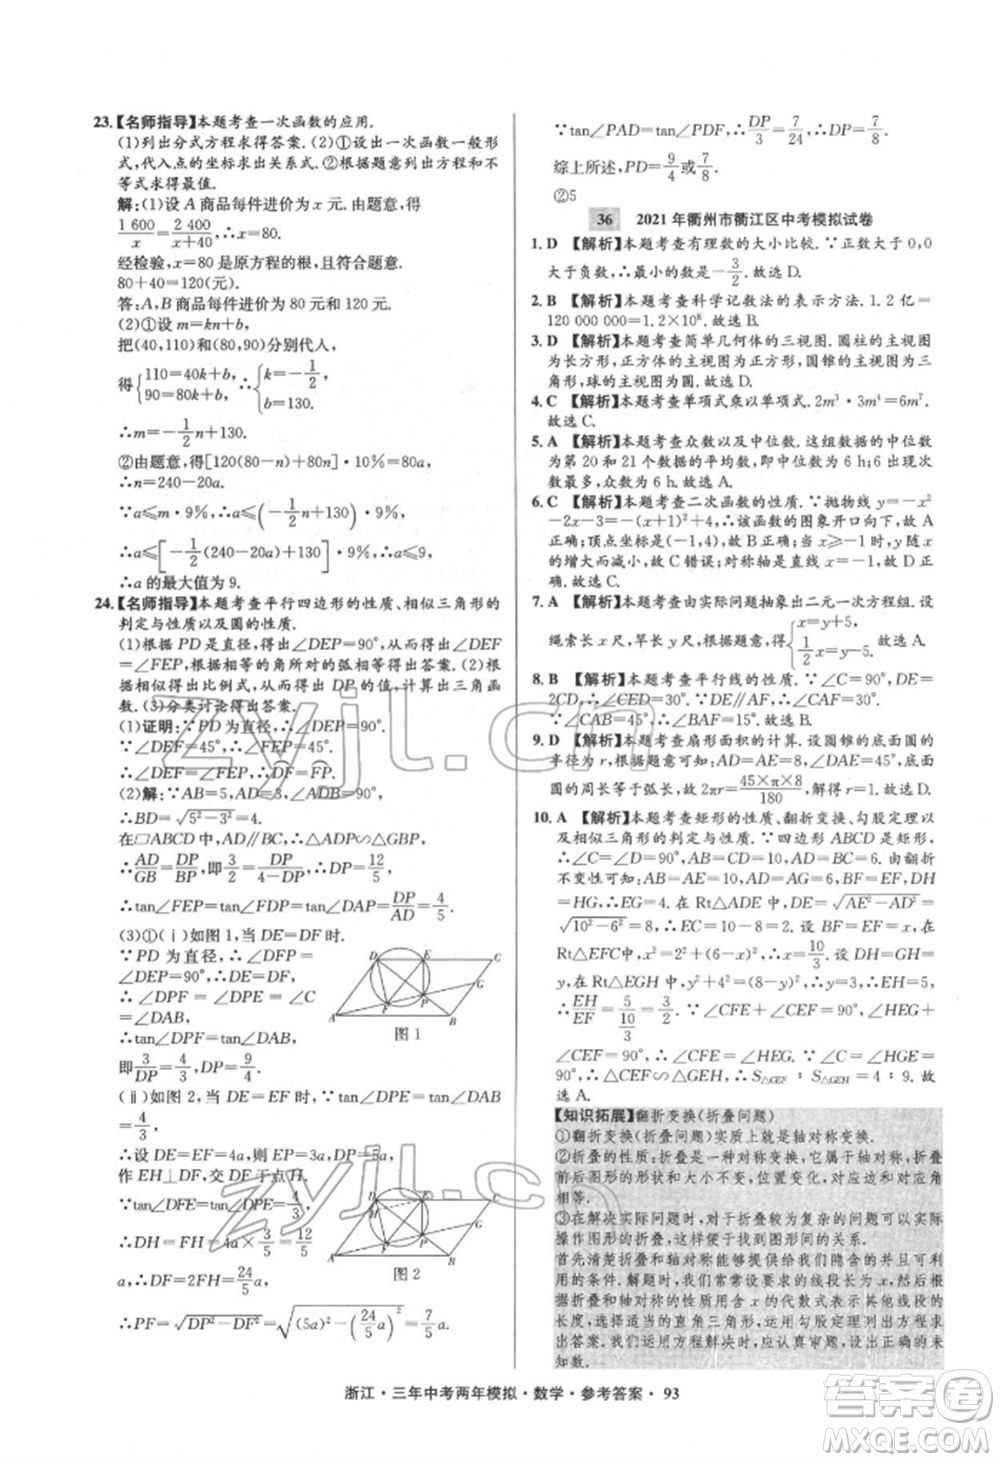 23.【名师指导】本题考查一次函数的应用.
(1)列出分式方程求得答案.(2)①设出一次函数一般形
式,代入点的坐标求出关系式.②根据题意,列出方程和不
等式求得最值.
解:(1)设 A 商品每件进价为 x 元.由题意,得
1 600/x=2 400/(x+40),∴x=80.
经检验,x=80是原方程的根,且符合题意.
80+40=120(元).
答:A,B 商品每件进价为 80 元和 120 元.
(2)①设 m=kn+b,
把(40,110)和(80,90)分别代入,
得{110=40k+b, 90=80k+b, ∴{k=-1/2, b=130.
∴m=-1/2n+130.
②由题意,得[120(80-n)+80n](1+a%)=7200+
∴n=240-20a.
∵a≤m·9%,∴a≤(-1/2n+130)·9%,
∴a≤[-1/2(240-20a)+130]·9%.
∴a 的最大值为 9.
24.【名师指导】本题考查平行四边形的性质、相似三角形的
判定与性质以及圆的性质.
(1)根据 PD 是直径,得出∠DEP=90°,从而得出∠DEF
=∠FEP,根据相等的角所对的弧相等得出答案.(2)根据
相似得出比例式,从而得出 DP 的值,计算出三角函
数.(3)分类讨论得出答案.
(1)证明:∵PD 为直径,∴∠DEP=90°.
∵∠DEF=45°,∴∠FEP=45°.
∴∠DEF=∠FEP,∴DF=FP.
(2)解:∵AB=5,AD=3,∠ADB=90°,
∴BD=√(5²-3²)=4.
在□ABCD 中,AD∥BG,∴△ADP∽△GBP.
∴AD/GB=DP/BP,即3/2=DP/(4-DP),∴DP=12/5.
∴tan∠FEP=tan∠FDP=tan∠DAP=DP/AD=4/5.
(3)①(ⅰ)如图 1,当 DE=DF 时.
∵PD 为直径,∴∠DFP=
∠DEP=90°,
∴∠DPF=∠DPE=∠C
=∠DAB,
∴tan∠DPF=tan∠DAB,
即3/DP=4/3,DP=9/4.
图 1
(ⅱ)如图 2,当 DE=EF 时,∵tan∠DPE=tan∠DAB=
4/3,
∴设 DE=EF=4a,则 EP=3a,DP=5a,
作 EH⊥DF 于点 H.
∵tan∠DFE=tan∠DPE=4/3,
∴DH=FH=4a×3/5=12/5
a,∴DF=2FH=24/5a,
图 2
∴PF=√(DP²-DF²)=√((5a)²-(24/5a)²)=7/5a.
∵tan∠PAD=tan∠PDF,∴DP/3=7/24,∴DP=7/8.
综上所述,PD=9/4或7/8.
②5
36 2021 年衢州市衢江区中考模拟试卷
1. D 【解析】本题考查有理数的大小比较.∵正数大于0,0
大于负数,∴最小的数是-3/2.故选 D.
2. B 【解析】本题考查科学记数法的表示方法.1.2 亿=
120 000 000=1.2×10⁸.故选 B.
3. D 【解析】本题考查简单几何体的三视图.圆柱的主视图
为长方形,正方体的主视图为正方形,圆锥的主视图为三
角形,球的主视图为圆.故选 D.
4. C 【解析】本题考查单项式乘以单项式.2m³·3m⁴=6m⁷.
故选 C.
5. A 【解析】本题考查众数以及中位数.这组数据的中位数
为第 20 和 21 个数据的平均数,即中位数为 6 h;6 出现次
数最多,众数为 6 h.故选 A.
6. C 【解析】本题考查二次函数的性质.∵抛物线 y=-x²
-2x+3=-(x+1)²+4,∴该函数的图象开口向下,故 A
正确;顶点坐标为(-1,4),故 B 正确;当 x≥-1 时,y 随 x
的增大而减小,故 C 错误;对称轴为直线 x=-1,故 D
正确.故选 C.
7. A 【解析】本题考查由实际问题抽象出二元一次方程组.设
绳索长 x 尺,竿长 y 尺,根据题意,得{x=y+5, 1/2x=y-5.故选 A.
8. B 【解析】本题考查平行线的性质.∵∠C=90°,DE=
2CD,∴∠CED=30°.∵DE∥AF,∴∠CAF=30°.
∵∠CAB=45°,∴∠BAF=15°.故选 B.
9. D 【解析】本题考查扇形面积的计算.设圆锥的底面圆的
半径为 r,根据题意,得 AD=AE=8,∠DAE=45°.底面
圆的周长等于弧长,故 2πr=(45×π×8)/180,解得 r=1.故选 D.
10. A 【解析】本题考查矩形的性质、翻折变换、勾股定理以
及相似三角形的判定与性质.∵四边形 ABCD 是矩形,
∴∠C=∠D=90°,AB=CD=10,AD=BC=6.由翻折
不变性可知,AB=AE=10,AD=AH=6,BF=EF,DH
=HG,∴HG=4.在 Rt△ADE 中,DE=√(AE²-AD²)=
√(10²-6²)=8,∴EC=10-8=2.设 BF=EF=x,在
Rt△EFC 中,x²=2²+(6-x)²,∴x=10/3.设 DH=GH=
y,在 Rt△EGH 中,y²+4²=(8-y)²,∴y=3,∴EH=5,
∴EH/EF=5/(10/3)=3/2.∵∠CFE+∠CEF=90°,∠HEG+
∠CEF=90°,∴∠CFE=∠HEG.∵∠C=∠HGE=
90°,∴△CEF∽△GEH,∴S△CEF∶S△GEH=4∶9.故选 A.
【知识拓展】翻折变换(折叠问题)
①翻折变换(折叠问题)实质上就是轴对称变换.
②折叠的性质:折叠是一种对称变换,它属于轴对称,折叠
前后图形的形状和大小不变,位置变化,对应边和对应角
相等.
③在解决实际问题时,对于折叠较为复杂的问题可以实际
操作图形的折叠,这样便于找到图形间的关系.
首先清楚折叠和轴对称能够提供给我们隐含的并且可利
用的条件.解题时,我们常常设要求的线段长为 x,然后根
据折叠和轴对称的性质用含 x 的代数式表示其他线段的
长度,选择适当的直角三角形,运用勾股定理列出方程求
出答案.我们运用方程解决时,应认真审题,设出正确的未
知数.
浙江·三年中考两年模拟·数学·参考答案·93
zyjl.cn
zyjl.cn
答案圈
MXQE.COM